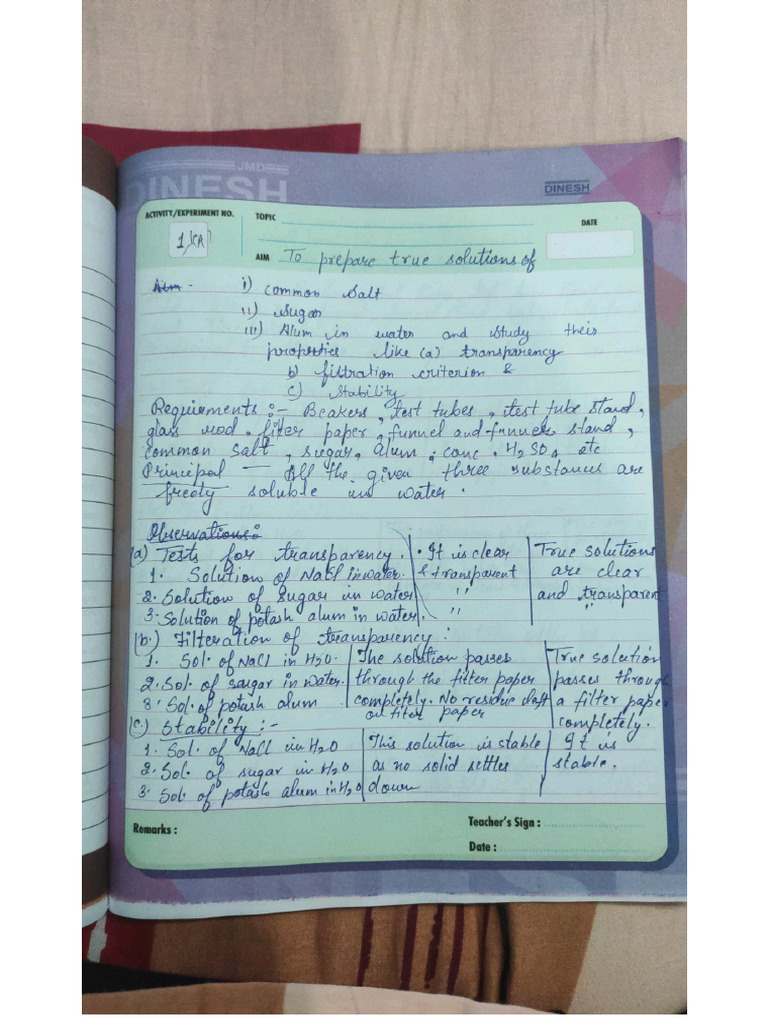 JMD
DINESH
DINESH
ACTIVITY/EXPERIMENT NO.
TOPIC
DATE
1
AIM To prepare true solutions of
Aim - i) common salt
ii) Sugar
iii) Alum in water and study their
properties like (a) transparency
b) filtration criterion &
c) Stability
Requirements :- Beakers, test tubes, test tube stand,
glass rod, filter paper, funnel and funnel stand,
common salt, sugar, alum, conc. H2SO4 etc
Principal — All the given three substances are
freely soluble in water.
Observations :
(a) Tests for transparency. • It is clear True solutions
1. Solution of NaCl in water. & transparent are clear
2. Solution of sugar in water " and transparent
3. Solution of potash alum in water. " "
(b.) Filteration of transparency :
1. Sol. of NaCl in H2O. The solution passes True solution
2. Sol. of saugar in water. through the filter paper passes through
3. Sol. of potash alum completely. No residue left a filter paper
on filter paper completely.
(c.) Stability :-
1. Sol. of NaCl in H2O This solution is stable It is
2. Sol. of sugar in H2O as no solid settles stable.
3. Sol. of potash alum in H2O down
Remarks :
Teacher's Sign :
Date :